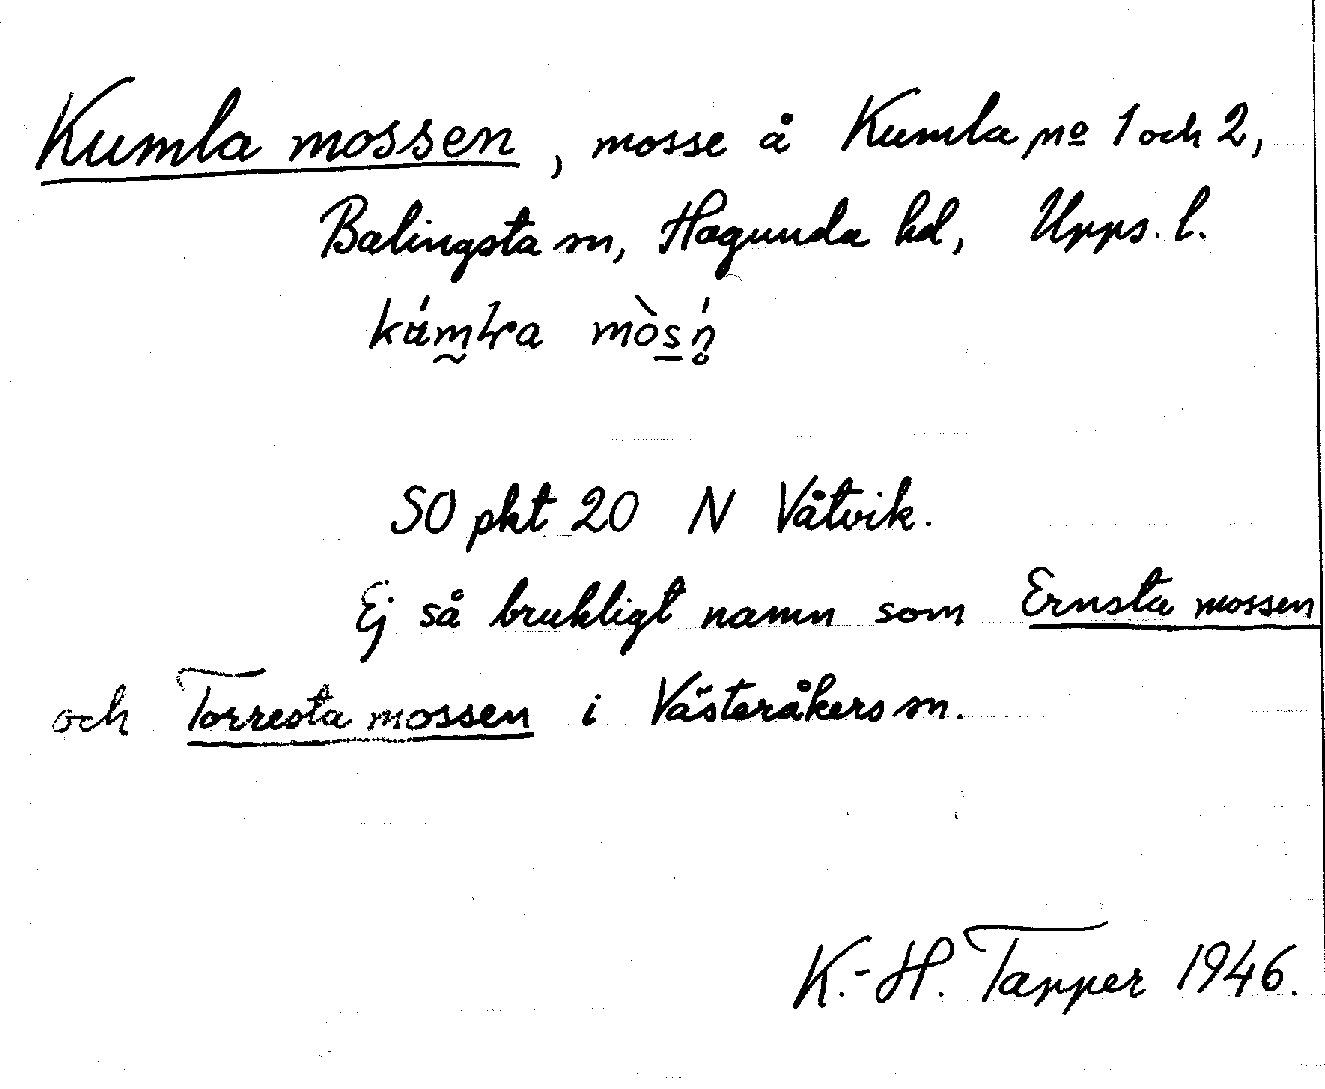 Kumla mossen, mosse å Kumla nº 1 och 2,
Balingsta sn, Hagunda hd, Upps. l.
mòsn̥
SO pkt 20 N Våtvik.
Ej så brukligt namn som Ernsta mossen
och Torresta mossen i Västeråkers sn.
K.-H. Tapper 1946.